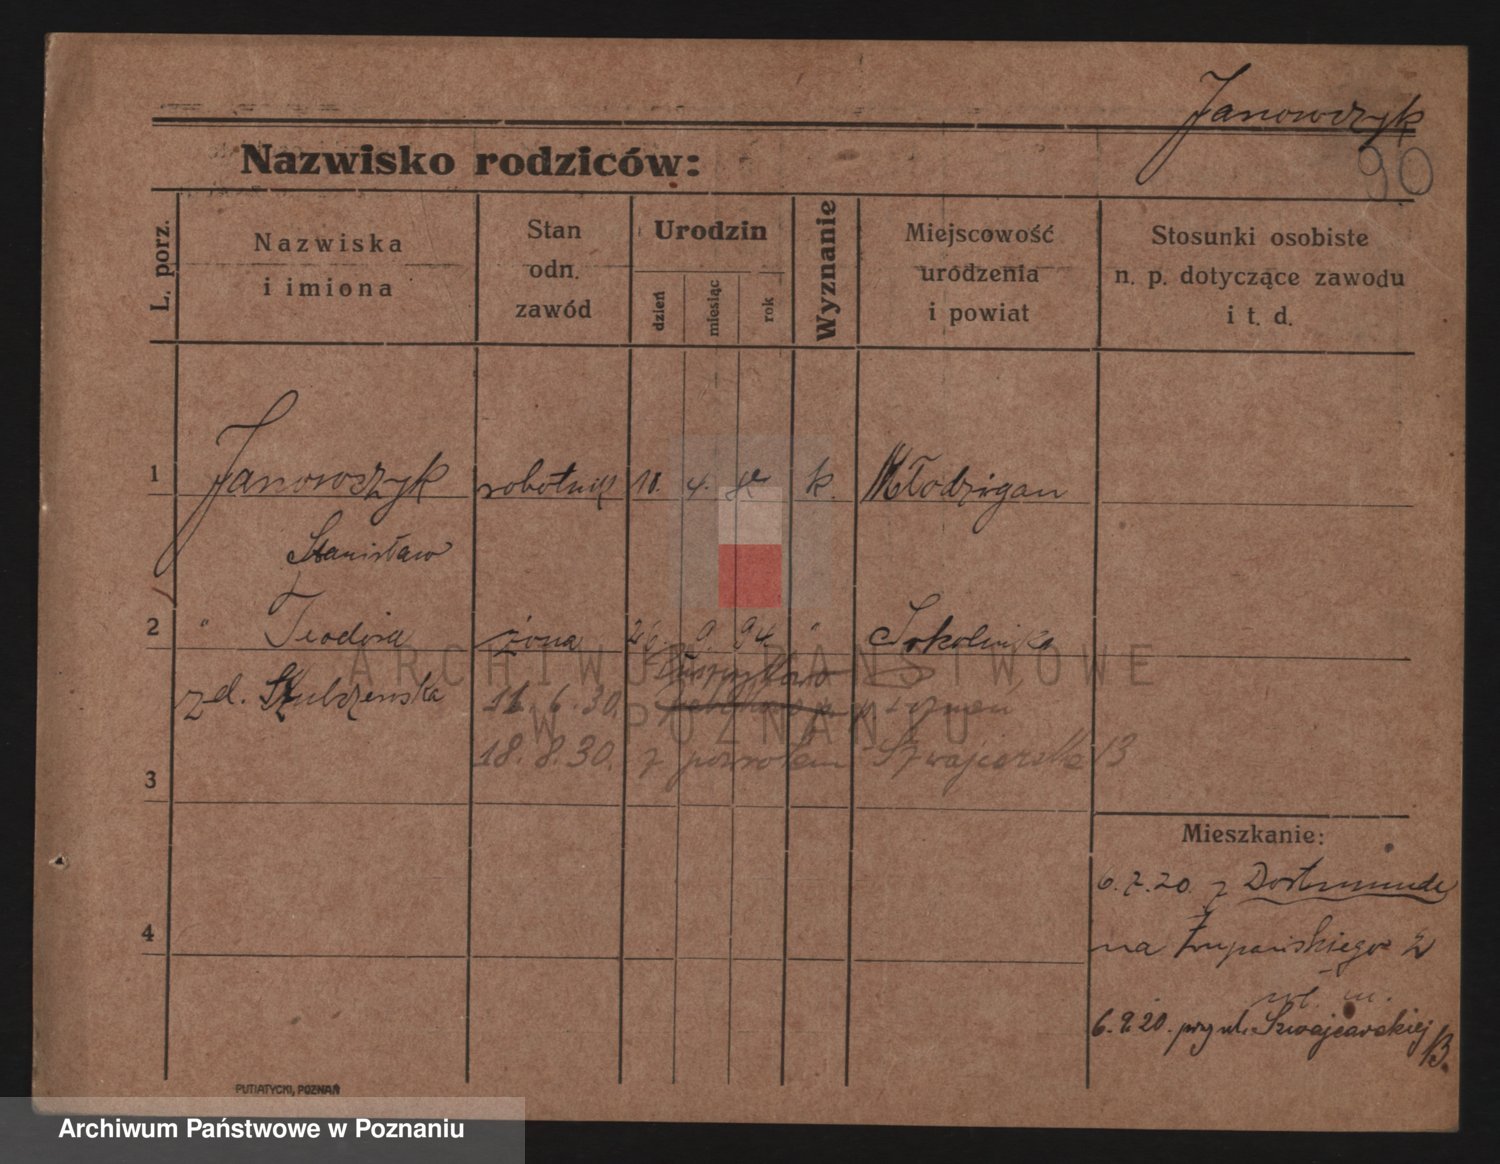 Janowczyk
90
Nazwisko rodziców:
L. porz.
Nazwiska
i imiona
Stan
odn.
zawód
Urodzin
dzień
miesiąc
rok
Wyznanie
Miejscowość
urodzenia
i powiat
Stosunki osobiste
n. p. dotyczące zawodu
i t. d.
1 Janowczyk robotnik 10. 4. k.
Stanisław
2 " Teodora żona 26. 9. 94. "
zd.
11. 6. 30.
18. 8. 30. z powrotem Szwajcarska 13
3
4
Mieszkanie:
6. 7. 20. z Dortmunde
na Żupańskiego
6. 9. 20. przy ul. Szwajcarskiej
13.
PUTIATYCKI, POZNAŃ
ARCHIWUM PAŃSTWOWE
W POZNANIU
Archiwum Państwowe w Poznaniu